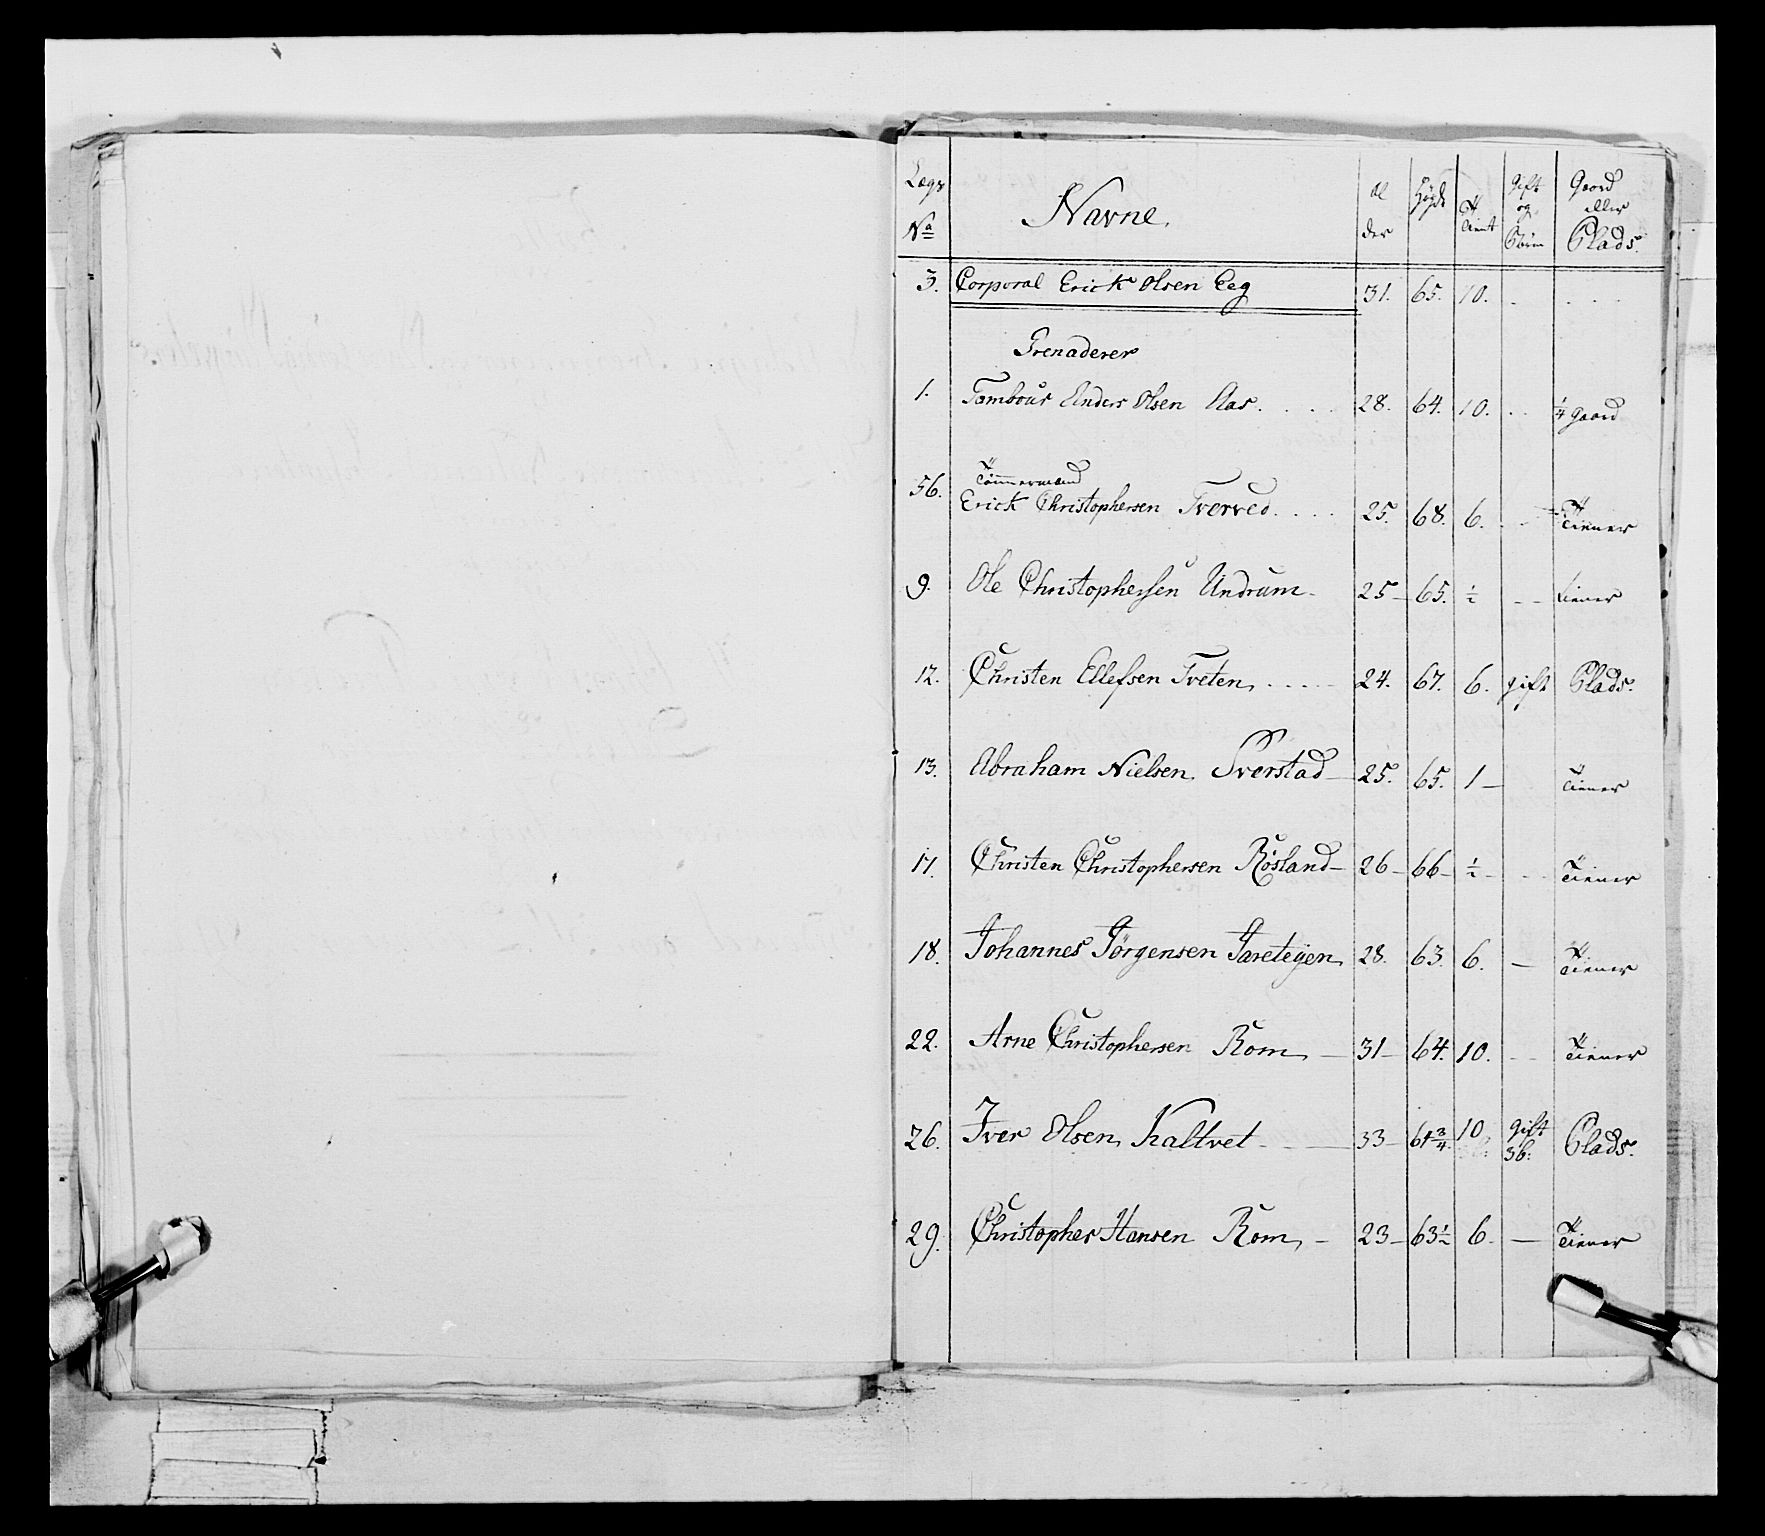 Lægs Nº Navne. Al der Høyde Tient Gift og Børn Gaard eller Plads.
3. Corporal Erick Olsen Eeg 31. 65. 10. . . . .
Grenaderer
1. Tambour Anders Olsen Aas. . . . 28. 64. 10. . . ¼ gaard
Tömmermand
56. Erick Christophersen Tverved. . . . 25. 68. 6. . . Tiener
9. Ole Christophersen Undrum - 25 - 65. ½ - - tiener
12. Christen Ellefsen Tveten, . . . - 24. 67. 6. gift Plads.
13. Abraham Nielsen Sverstad - 25. 65. 1 - Tiener
17. Christen Christophersen Rösland - 26 - 66 - ½ - - - Tiener
18. Johannes Jørgensen 28. 63. 6. - Tiener
22. Arne Christophersen Rom, - 31 - 64. 10. - - Tiener
26. Iver Olsen Kaltvet - - 33 - 64¾ 10. gift 3b: Plads.
29. Christopher Hansen Rom, - 23 - 63½ 6. - Tiener